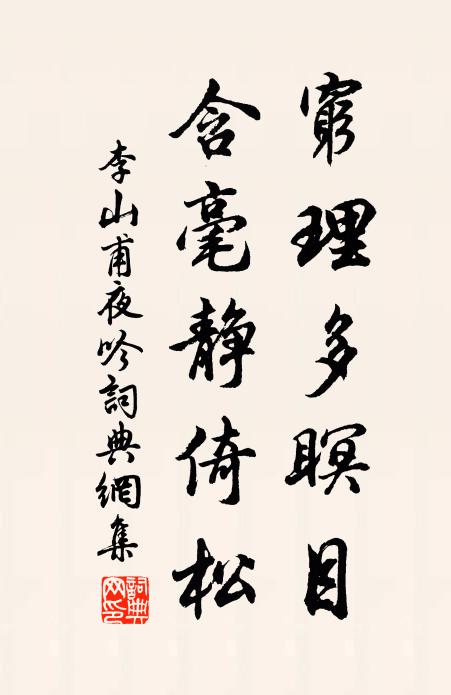 窮理多瞑目
含毫靜倚松
李山甫夜吟詞典網集
詞典網印